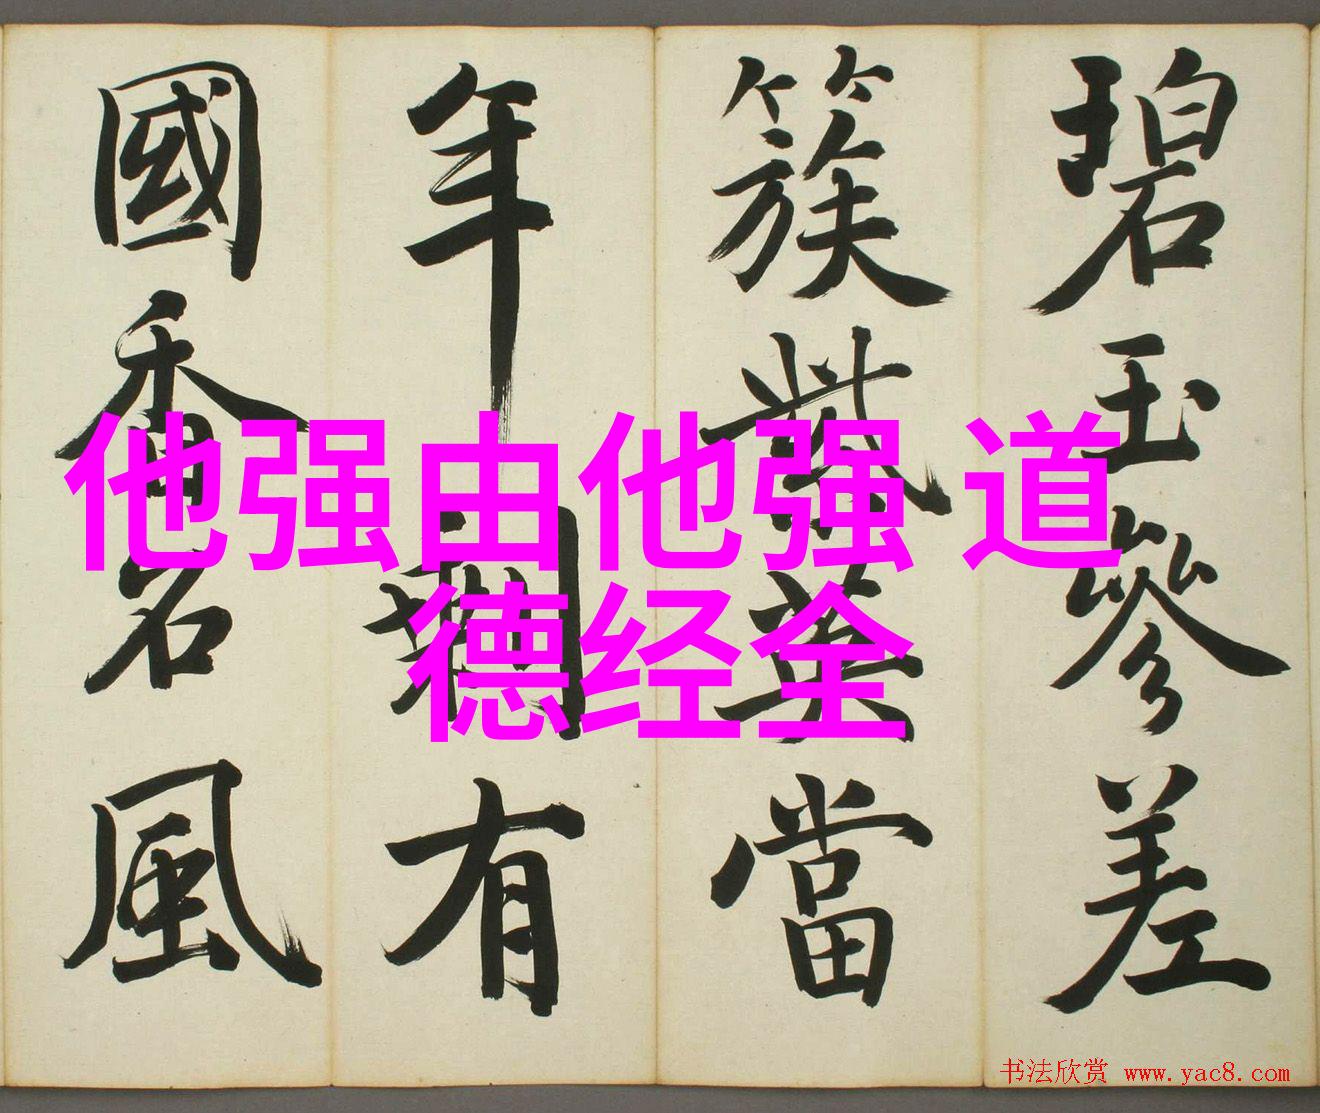 碧玉參差
簇紫英當
年剩有
國香名風
他强由他强 道
德经全
书法欣赏 www.yac8.com